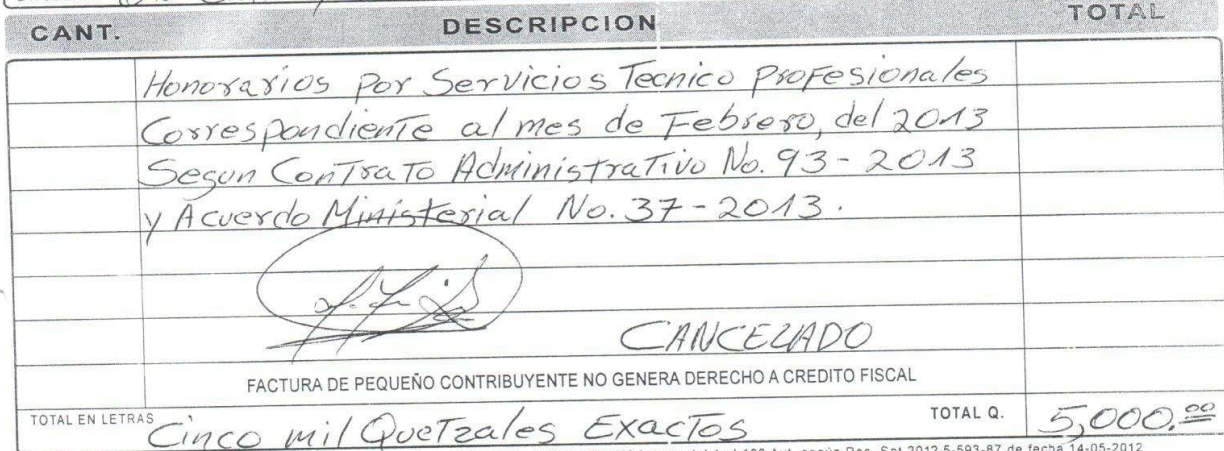 CANT. DESCRIPCION TOTAL
Honorarios Por Servicios Tecnico Profesionales
Correspondiente al mes de Febrero, del 2013
Segun Contrato Administrativo No. 93-2013
y Acuerdo Ministerial No. 37-2013.
CANCELADO
FACTURA DE PEQUEÑO CONTRIBUYENTE NO GENERA DERECHO A CREDITO FISCAL
TOTAL EN LETRAS Cinco mil Quetzales Exactos TOTAL Q. 5,000.00
según Res. Sat 2012 5-593-87 de fecha 14-05-2012